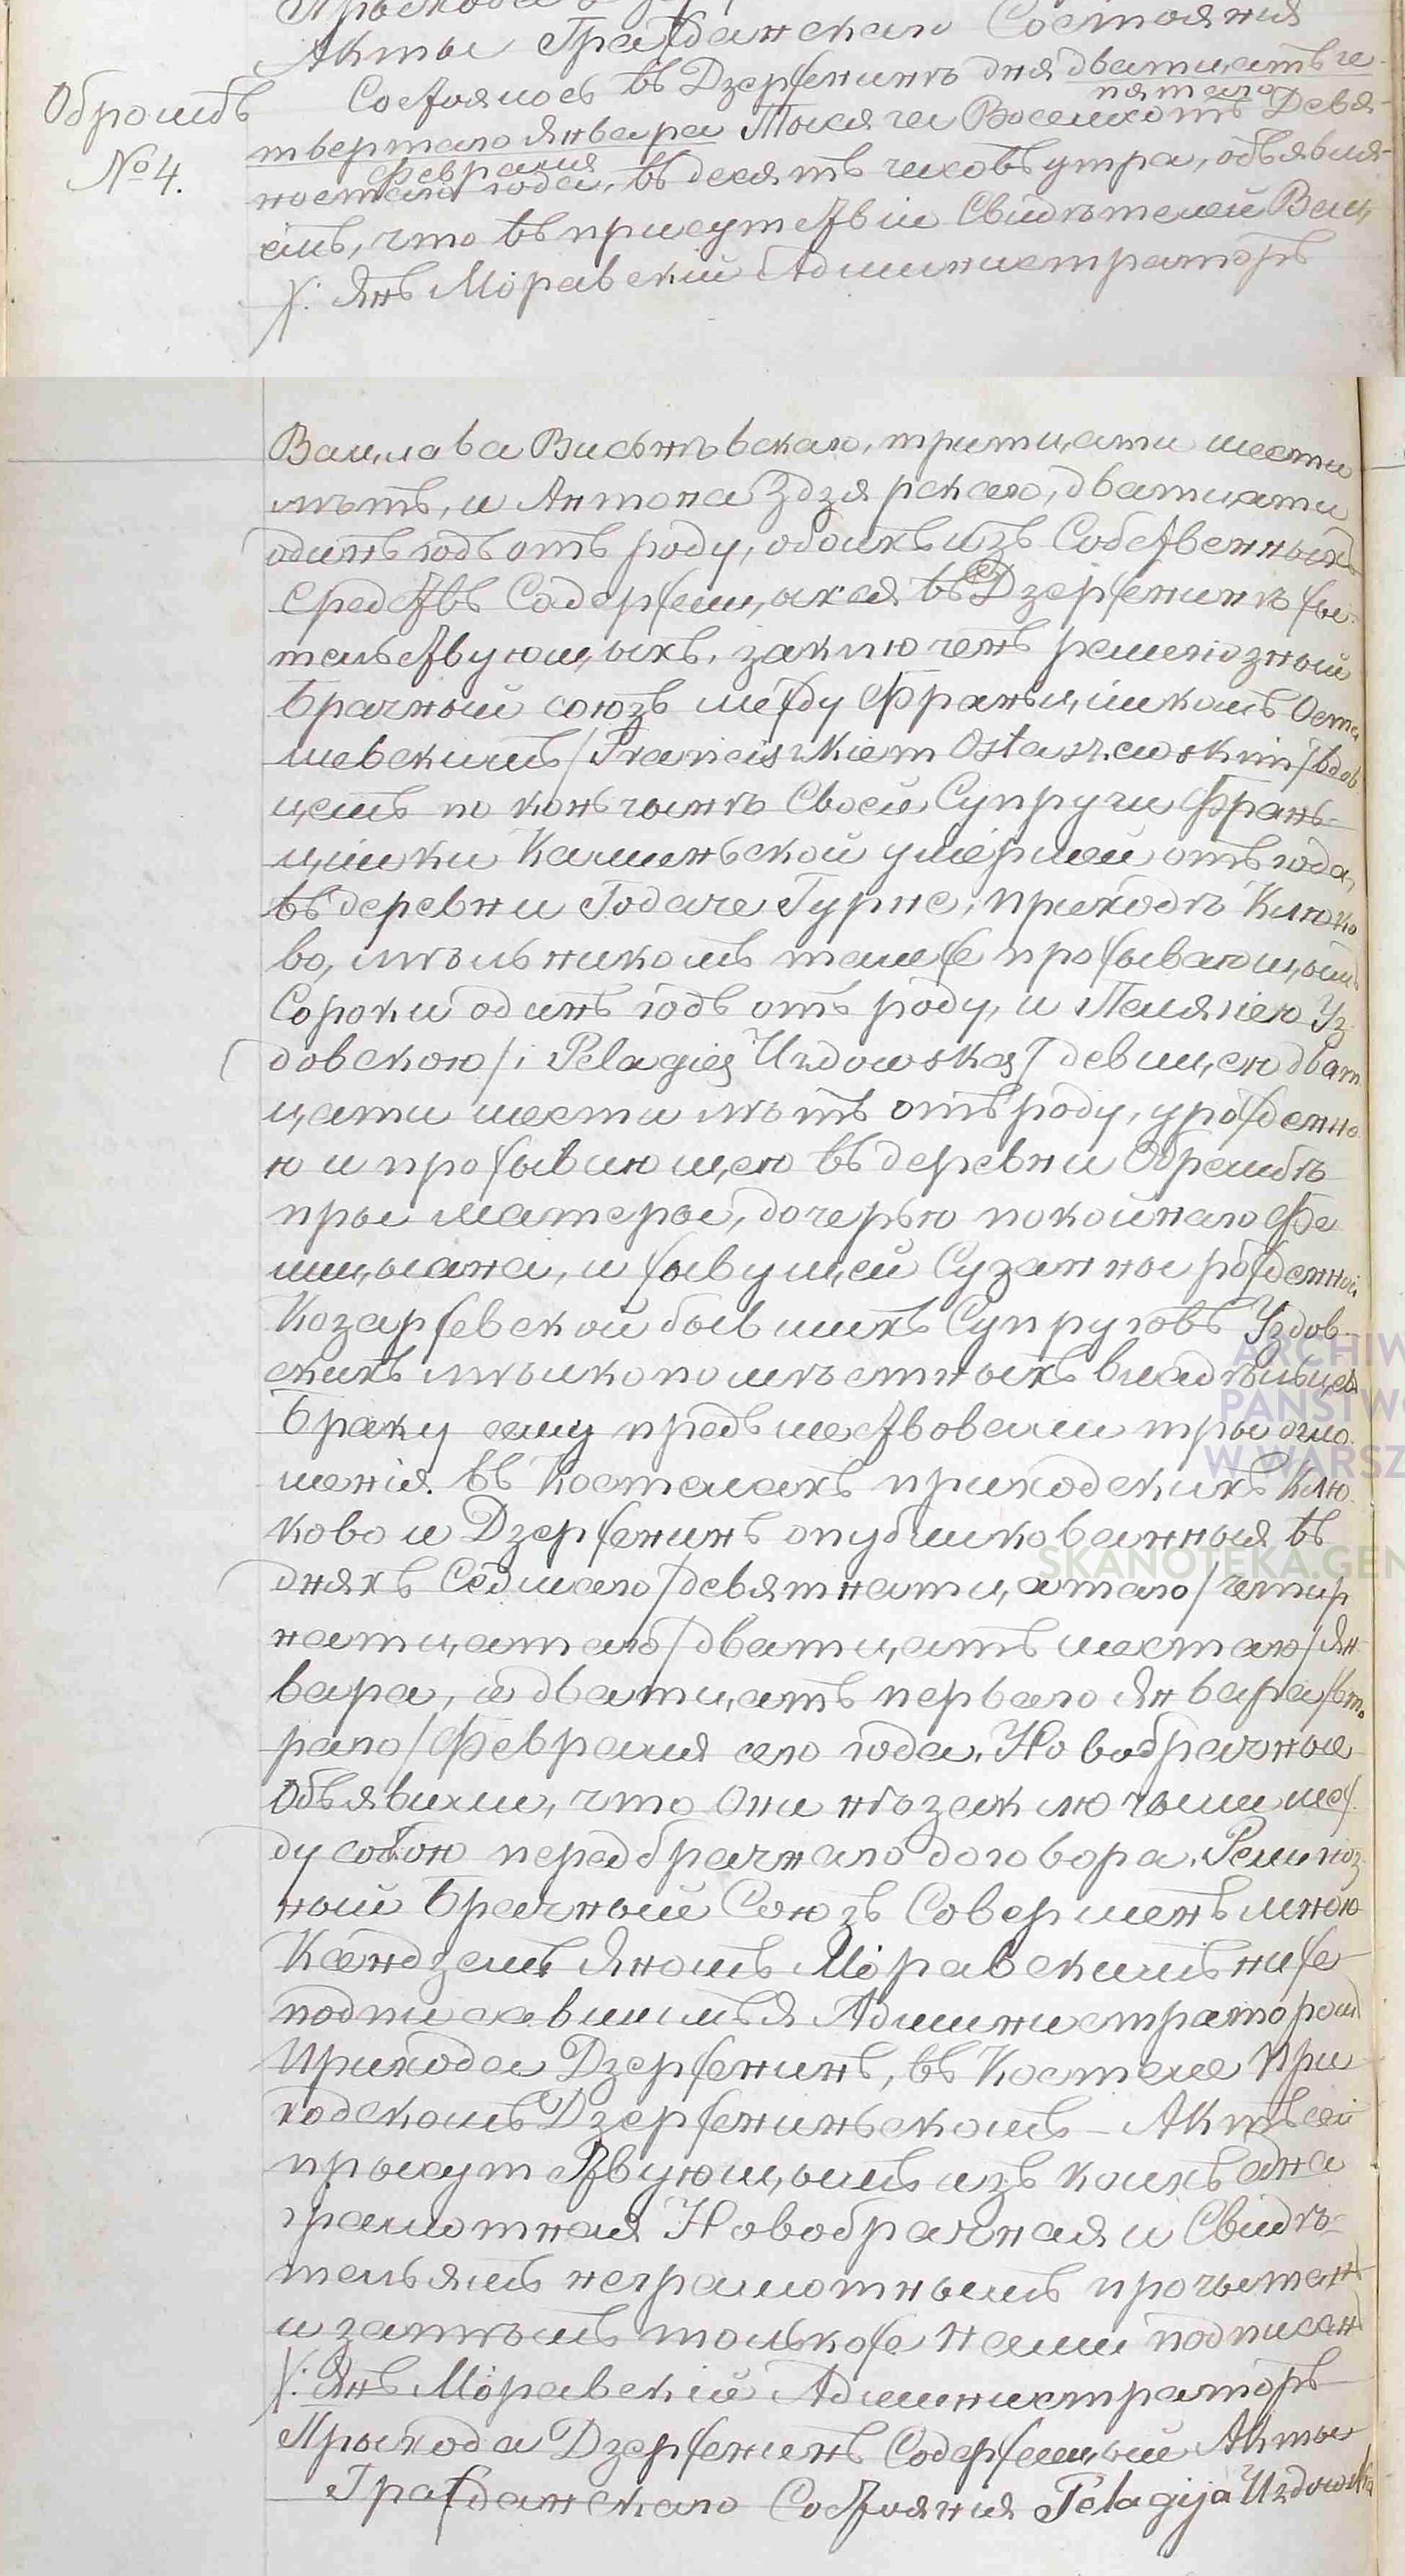 Акты Гражданскаго Состоянія
Обромбъ
№ 4.
Состоялось въ Дзерженинѣ дня дватцать че-
пятаго
твертаго Января Тысяча Восемсотъ Девя-
февраля
ностаго года, въ десять часовъ утра, объявля-
емъ, что въ присутствіи Свидѣтелей Вац,
Х: Янъ Моравскій Администраторъ
Вацлава Висьнѣвскаго, тритцати шести
лѣтъ, и Антона Здзярскаго, дватцати
одинъ годъ отъ роду, обоихъ изъ Собственныхъ
Средствъ Содержещихся въ Дзерженинѣ жи-
тельствующыхъ, заключенъ религіозный
брачный союзъ между Франьцишкомъ Оста
шевскимъ /Franciszkiem Ostaszewskim/ вдов
цемъ по коньчинѣ Своей Супруги Франь-
цишки Каминьской умершей отъ года,
въ деревни Годаче Гурне, приходѣ Клюко
во, мѣльникомъ тамже прожывающымъ
Сороки одинъ годъ отъ роду, и Пелягіею Уз
довскою /i Pelagieą Uzdowską/ девицею дват
цати шести лѣтъ отъ роду, урожденно
ю и прожывающею въ деревни Обрембѣ
пры матеры, дочерью покойнаго Фе
лицыана, и жывущей Сузанны рожденной
Козаржевской бывшихъ Супруговъ Уздов-
скихъ мѣлкопомѣстныхъ владѣльцевъ
Браку сему предшествовали тры огло
шенія въ Костелахъ приходскихъ Клю
ково и Дзерженинъ опубликованныя въ
дняхъ Седмаго /девятнатцатаго/ четыр
натцатаго /дватцать шестаго/ Ян
вара, и дватцать перваго Января /вто
раго/ Февраля сего года. Новобрачные
Объявили, что Они нѣзаключыли меж
ду собою передбрачнаго договора. Религіоз
ный Брачный Союзъ Совершенъ мною
Ксендземъ Яномъ Моравскимъ ниже
подписавшимся Администраторомъ
Прихода Дзерженинъ, въ Костеле При
ходскомъ Дзерженинскомъ – Актъ сей
прысутствующымъ изъ коихъ одна
грамотная Новобрачная и Свидѣ-
тельямъ неграмотнымъ прочытанъ
и затѣмъ толькоже Нами подписанъ
Х: Янъ Моравскій Администраторъ
Прыхода Дзерженинъ Содержещый Акты
Гражданскаго Состоянія Pelagija Uzdowska
ARCHIW
PAŃSTWO
W WARSZ
SKANOTEKA.GEN